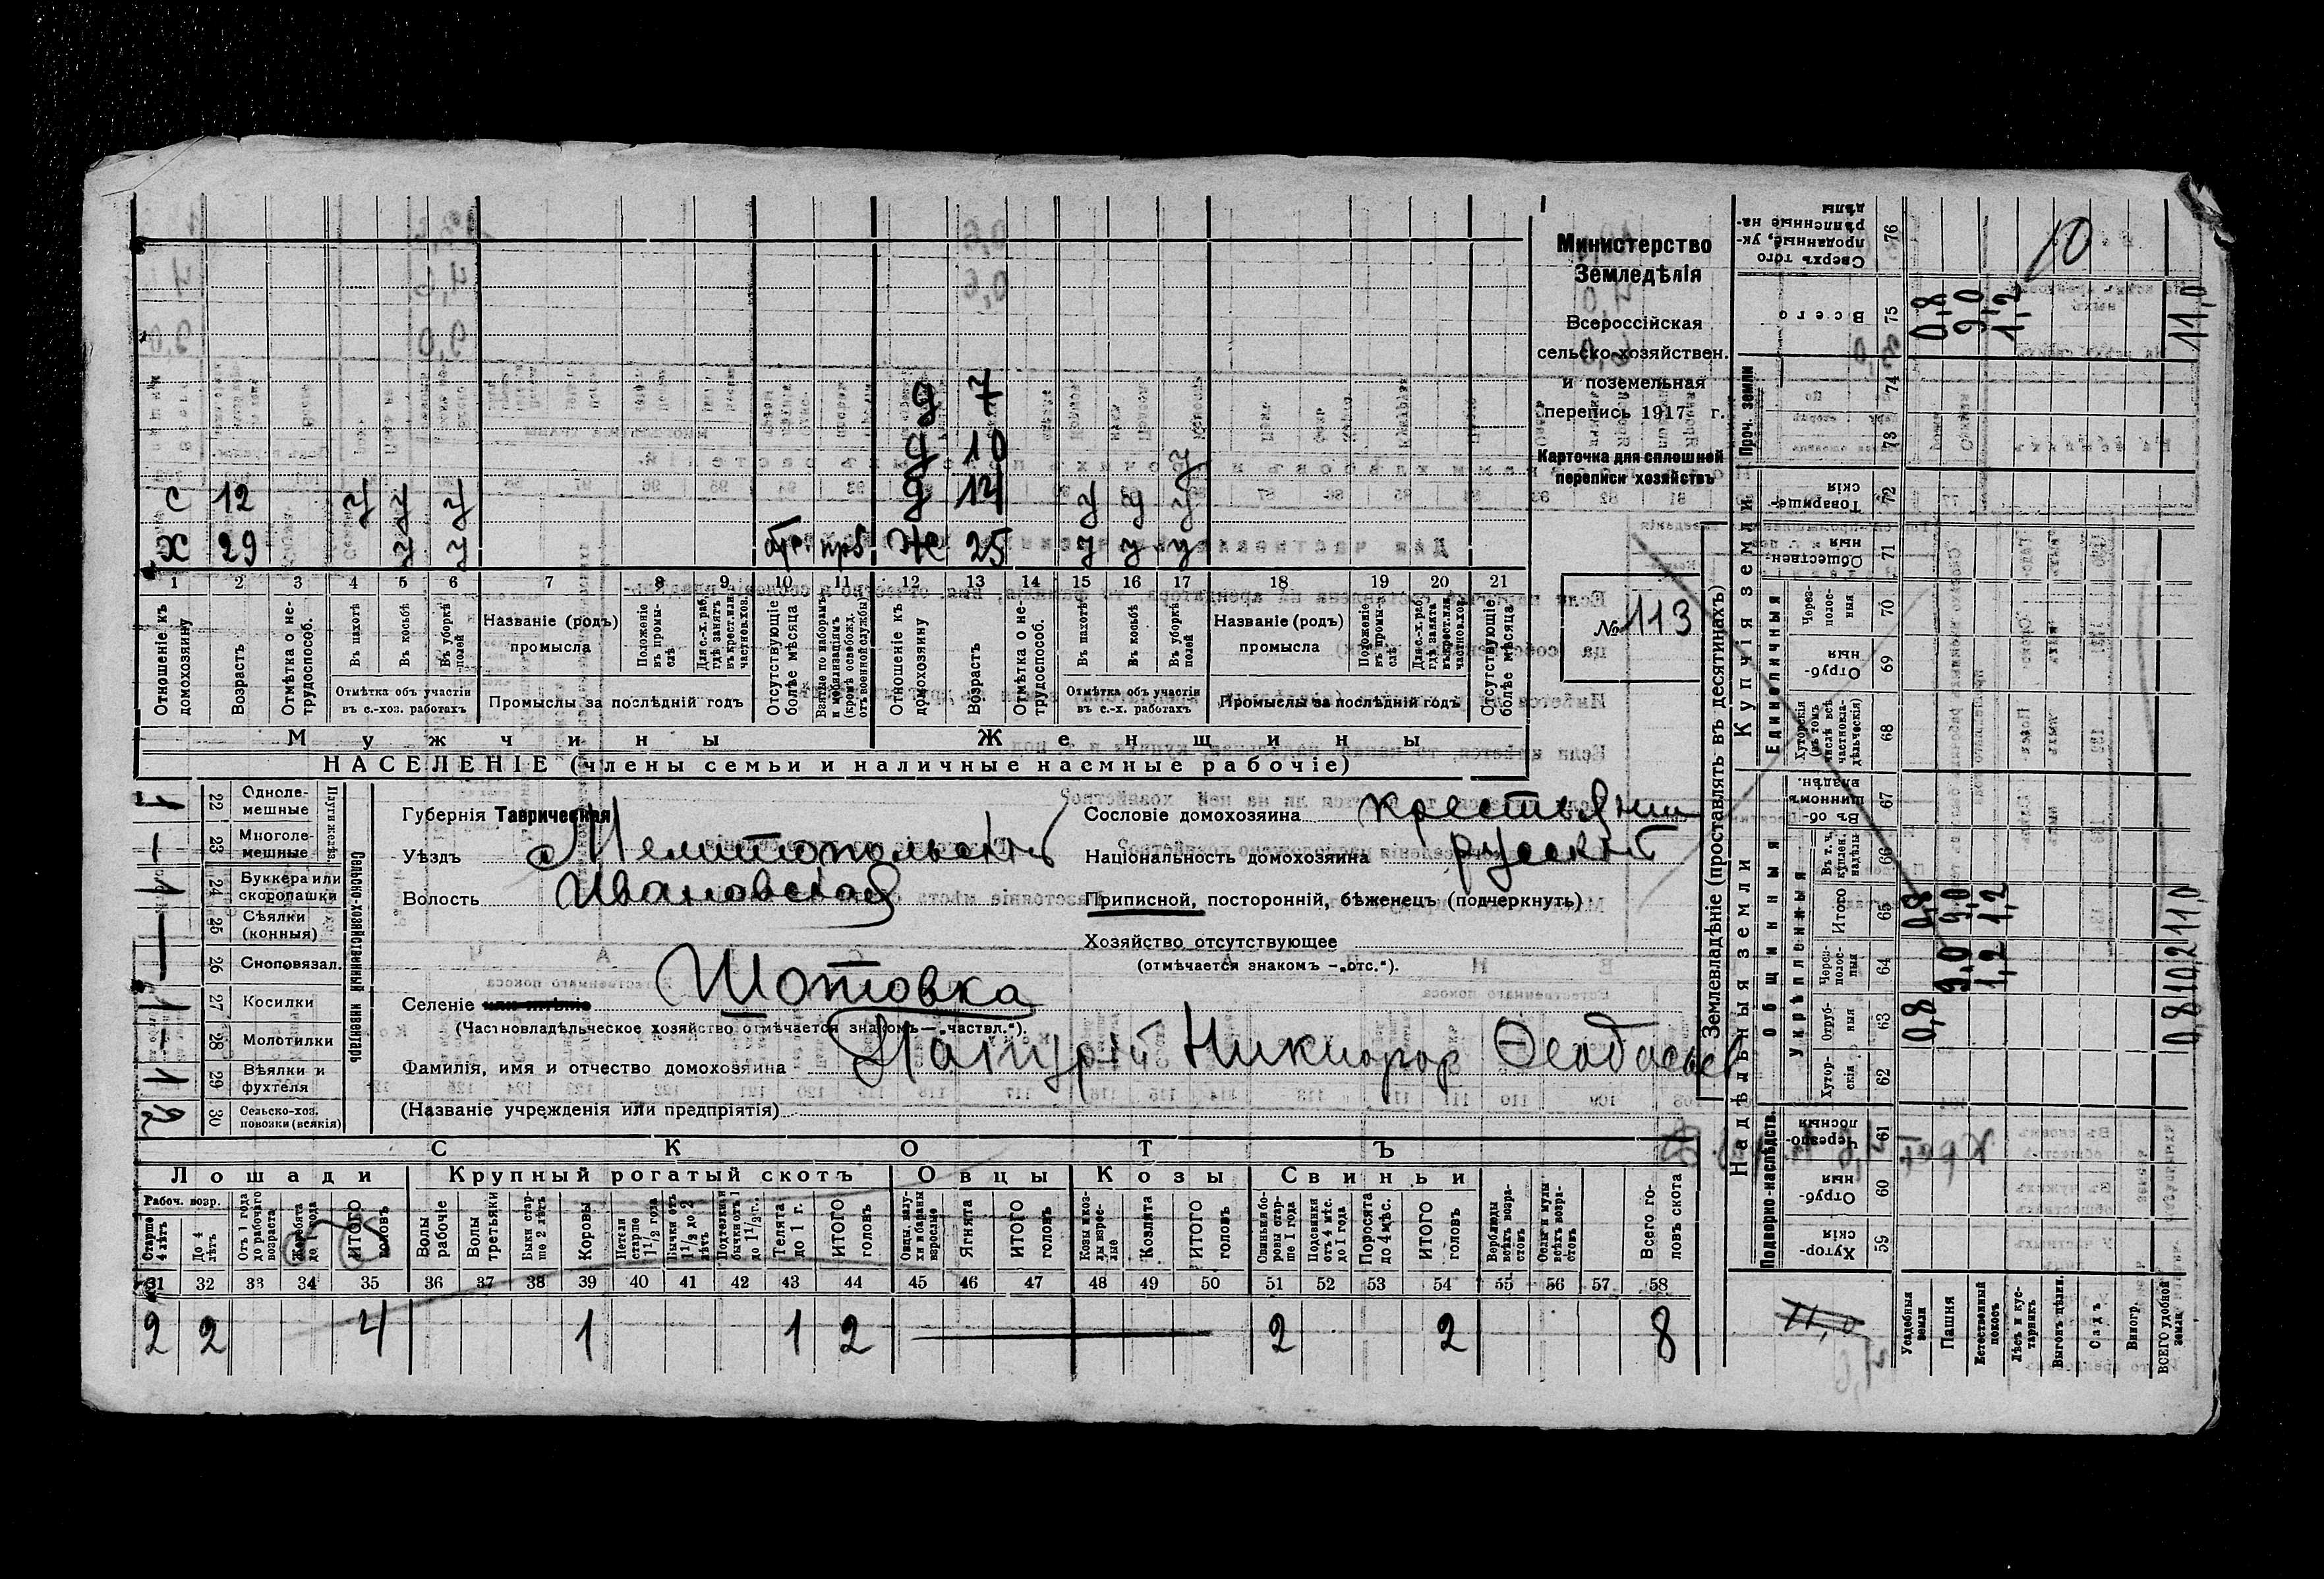 Министерство
Земледѣлія
Всероссійская
сельско-хозяйствен.
и поземельная
перепись 1917 г.
Карточка для сплошной
переписи хозяйствъ
№ 113
д 7
д 10
с 12 у у у д 14 у у у
х 29 у у Ж 25 у у у
1 2 3 4 5 6 7 8 9 10 11 12 13 14 15 16 17 18 19 20 21
Отношеніе къ домохозяину
Возрастъ
Отмѣтка о не-трудоспособ.
Въ пахотѣ
Въ косьбѣ
Въ уборкѣ полей
Отмѣтка объ участіи
въ с.-хоз. работахъ
Названіе (родъ)
промысла
Положеніе въ промы-слѣ
Для с.-х. раб. гдѣ занятъ въ крест. или частнов. хоз.
Промыслы за послѣдній годъ
Отсутствующіе болѣе мѣсяца
Взятые по наборамъ и мобилизаціямъ (кромѣ освобожд. отъ военной службы)
Отношеніе къ домохозяину
Возрастъ
Отмѣтка о не-трудоспособ.
Въ пахотѣ
Въ косьбѣ
Въ уборкѣ полей
Отмѣтка объ участіи
въ с.-х. работахъ
Названіе (родъ)
промысла
Положеніе въ промы-слѣ
Для с.-х. раб. гдѣ занята въ крест. или частнов. хоз.
Промыслы за послѣдній годъ
Отсутствующіе болѣе мѣсяца
Мужчины Женщины
НАСЕЛЕНІЕ (члены семьи и наличные наемные рабочіе)
Сельско-хозяйственный инвентарь
Плуги желѣз.
1 22 Однолемешные
— 23 Многолемешные
1 24 Буккера или скоропашки
25 Сѣялки (конныя)
26 Сноповязал.
1 27 Косилки
- 28 Молотилки
1 29 Вѣялки и фухтеля
2 30 Сельско-хоз. повозки (всякія)
Губернія Таврическая
Уѣздъ Мелитопольскій
Волость Ивановская
Селеніе или имѣніе Шотовка
(Частновладѣльческое хозяйство отмѣчается знакомъ — „частвл.“).
Фамилія, имя и отчество домохозяина Никифор
(Названіе учрежденія или предпріятія)
Сословіе домохозяина крестьянин
Національность домохозяина русскій
Приписной, посторонній, бѣженецъ (подчеркнуть)
Хозяйство отсутствующее
(отмѣчается знакомъ — „отс.“).
СКОТЪ
Лошади Крупный рогатый скотъ Овцы Козы Свиньи
Рабоч. возр.
Старше 4 лѣтъ
До 4 лѣтъ
Отъ 1 года до рабочаго возраста
Жеребята до 1 года
ИТОГО головъ
Волы рабочіе
Волы третьяки
Быки старше 2 лѣтъ
Коровы
Нетели старше 1 1/2 года
Бычки отъ 1 1/2 до 2 лѣтъ
Подтелки и бычки отъ 1 до 1 1/2 г.
Телята до 1 г.
ИТОГО головъ
Овцы, валухи и бараны взрослые
Ягнята
ИТОГО головъ
Козы и козлы взрослые
Козлята
ИТОГО головъ
Свиньи боровы старше 1 года
Подсвинки отъ 4 мѣс. до 1 года
Поросята до 4 мѣс.
ИТОГО головъ
Верблюды всѣхъ возрастовъ
Ослы и мулы всѣхъ возрастовъ
Всего головъ скота
31 32 33 34 35 36 37 38 39 40 41 42 43 44 45 46 47 48 49 50 51 52 53 54 55 56 57 58
2 2 4 1 1 2 2 2 8
Землевладѣніе (проставлять въ десятинахъ)
Надѣльныя земли Купчія земли Проч. земли
Подворно-наслѣдств.
Общинныя
Укрѣпленныя
Единоличныя
59 Хуторскія
60 Отрубныя
61 Черезполосныя
62 Хуторскія
63 Отрубныя
64 Черезполосныя
65 Итого
66 Въ т. ч. куплен. надѣлы
67 Въ общинномъ владѣн.
68 Хуторскія (въ томъ числѣ всѣ частновладѣльческія)
69 Отрубныя
70 Черезполосныя
71 Общественныя
72 Товарищескія
73
74
75 Всего
76 Сверхъ того проданные, укрѣпленные надѣлы
Усадебныя земли 0,8 0,8 0,8
Пашня 9,0 9,0 9,0
Естественный покосъ 1,2 1,2 1,2
Лѣсъ и кустарникъ
Выгонъ цѣлин.
Садъ
Виногр.
ВСЕГО удобной земли 0,8 10,2 11,0 11,0
10
11,0